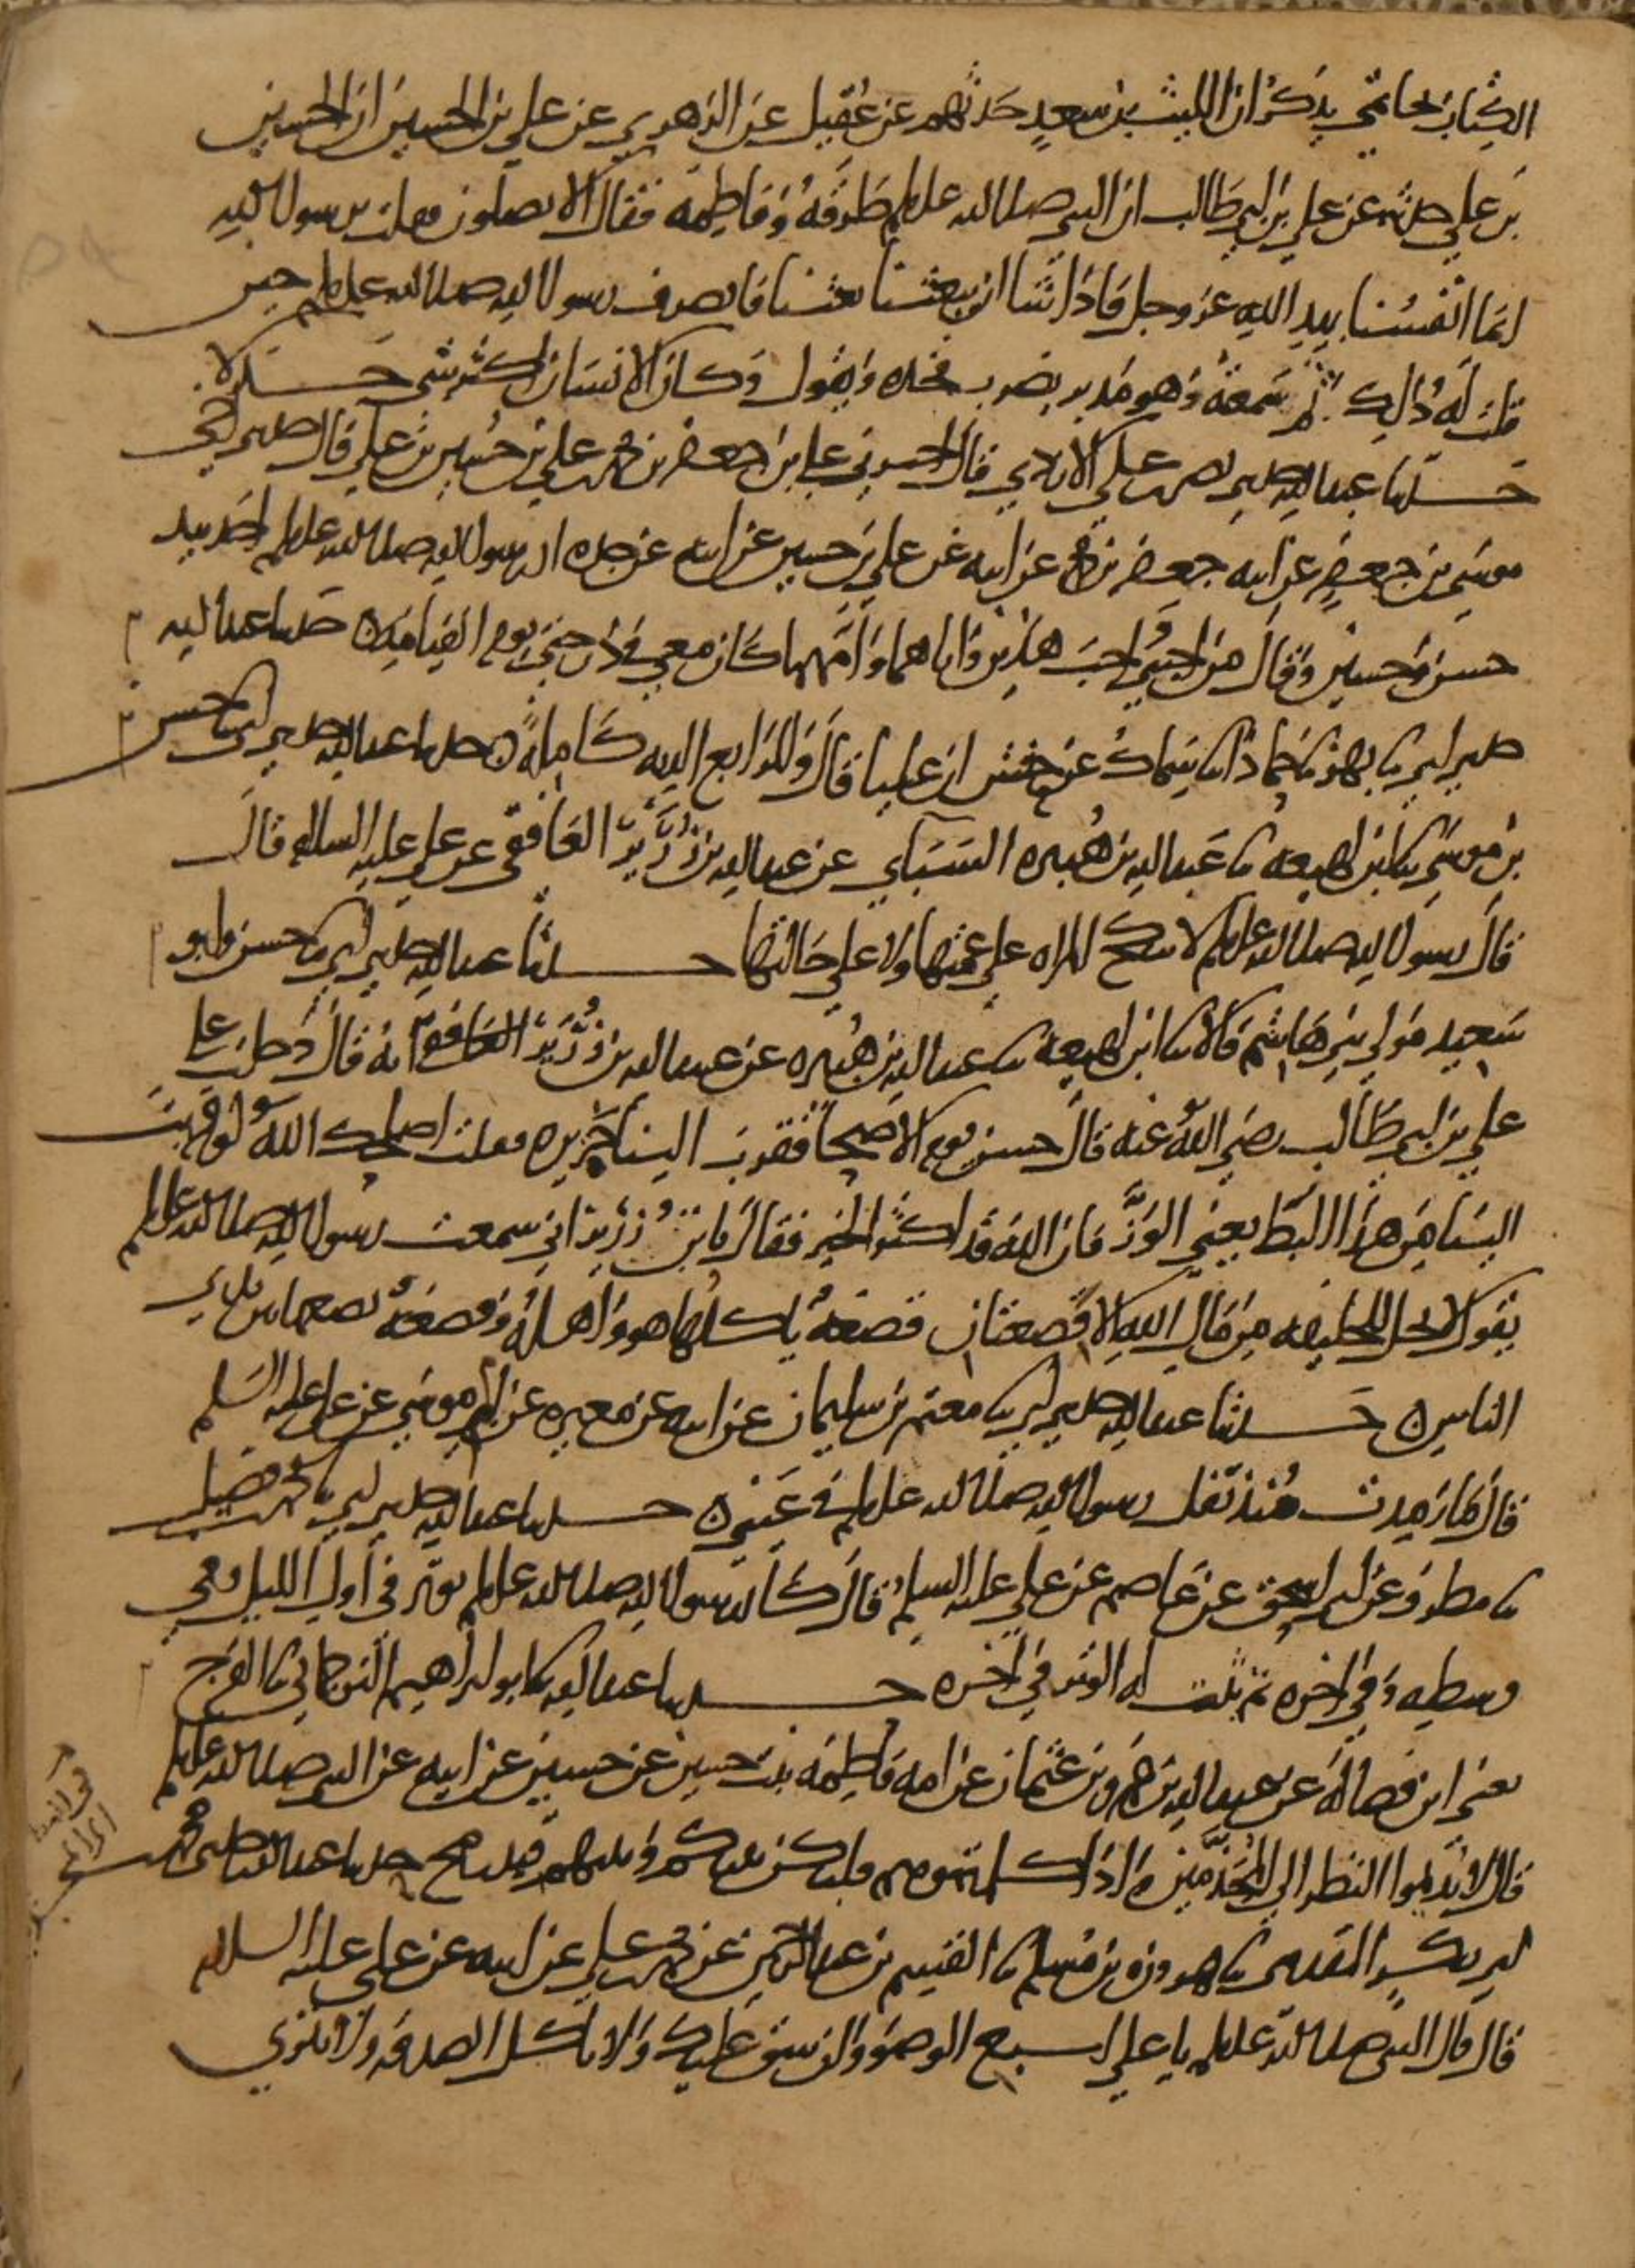 الكتاب حاتمي يذكر ان الليث بن سعد حدثهم عن عقيل عن الزهري عن علي بن الحسين ان الحسين
بن علي حدثه عن علي بن ابي طالب ان النبي صلى الله عليه وسلم طرقه وفاطمة فقال الا تصلون فقلت يرسول الله
انما انفسنا بيد الله عز وجل فاذا شا ان يبعثنا بعثنا فانصرف رسول الله صلى الله عليه وسلم حين
قلت له ذلك ثم سمعته وهو مدبر يضرب فخذه ويقول وكان الانسان اكثر شي جدلا
حدثنا عبد الله حدثني نصر بن علي الازدي قال اخبرني علي بن جعفر بن محمد بن علي بن حسين بن علي قال حدثني اخي
موسى بن جعفر عن ابيه جعفر بن محمد عن ابيه عن علي بن حسين عن ابيه عن جده ان رسول الله صلى الله عليه وسلم اخذ بيد
حسن وحسين وقال من احبني واحب هذين واباهما وامهما كان معي في درجتي يوم القيامة حدثنا عبد الله
حدثني ابي نا بهز نا حماد انا سماك عن حنش ان عليا قال وللرابع الدية كاملة حدثنا عبد الله حدثني ابي نا حسن
بن موسى نا ابن لهيعه نا عبد الله بن هبيره السبائي عن عبد الله بن زرير الغافقي عن علي عليه السلام قال
قال رسول الله صلى الله عليه وسلم لا تنكح المراه على عمتها ولا على خالتها حدثنا عبد الله حدثني ابي نا حسن وابو
سعيد مولى بني هاشم قالا نا ابن لهيعه نا عبد الله بن هبيره عن عبد الله بن زرير الغافقي انه قال دخلت على
علي بن ابي طالب رضي الله عنه قال حسن يوم الاضحا فقرب الينا خزيره فقلت اصلحك الله لو قربت
الينا من هذا البط يعني الوز فان الله قد اكثر الخير فقال يابن زرير اني سمعت رسول الله صلى الله عليه وسلم
يقول لا يحل للخليفه من مال الله الا قصعتان قصعة ياكلها هو واهله وقصعة يضعها بين يدي
الناس حدثنا عبد الله حدثني ابي نا معتمر بن سليمان عن ابيه عن مغيره عن ام موسى عن علي عليه السلم
قال ما رمدت منذ تفل رسول الله صلى الله عليه وسلم في عيني حدثنا عبد الله حدثني ابي نا محمد بن فضيل
نا مطرف عن ابي اسحق عن عاصم عن علي عليه السلم قال كان رسول الله صلى الله عليه وسلم يوتر في اول الليل وفي
وسطه وفي اخره ثم ثبت له الوتر في اخره حدثنا عبد الله نا ابو ابراهيم الترجماني نا الفرج
يعني ابن فضاله عن عبد الله بن عمرو بن عثمان عن امه فاطمه بنت حسين عن حسين عن ابيه عن النبي صلى الله عليه وسلم
قال لا تديموا النظر الى المجذمين واذا كلمتموهم فليكن بينكم وبينهم قيد رمح حدثنا عبد الله حدثني محمد بن
ابي بكر المقدمي نا هرون بن مسلم نا القسم بن عبد الرحمن عن محمد بن علي عن ابيه عن علي عليه السلام
قال قال النبي صلى الله عليه وسلم يا علي اسبغ الوضو وان شق عليك ولا تاكل الصدقه ولا تنزي